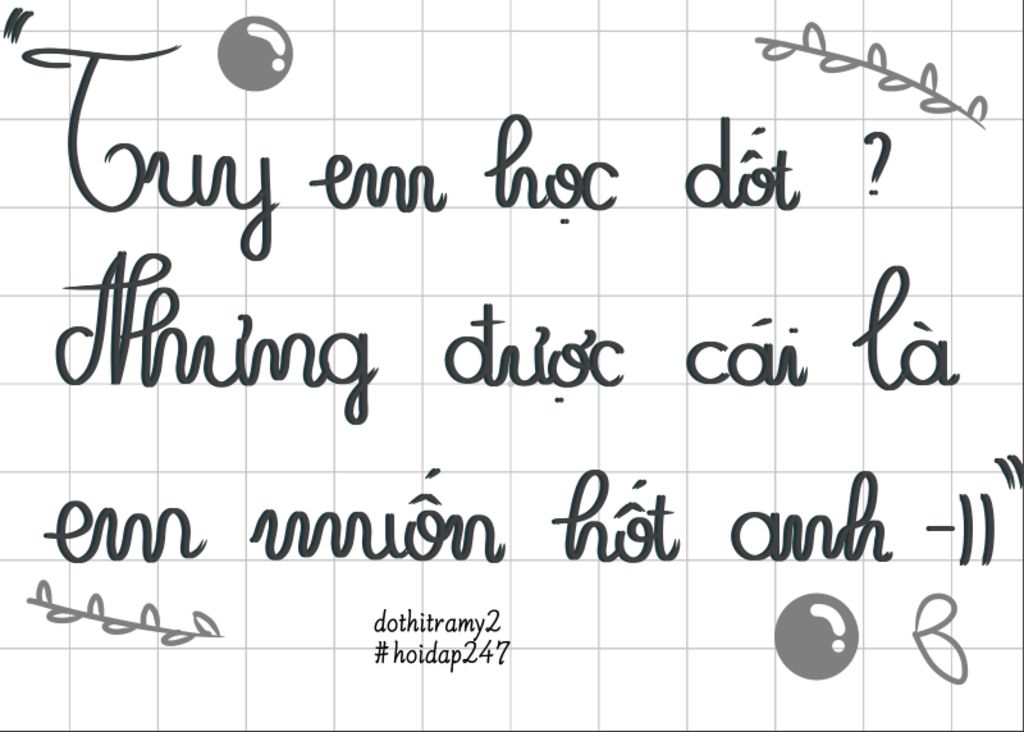 "Tuy em học dốt ?
Nhưng được cái là
em muốn hốt anh -))"
dothitramy2
#hoidap247